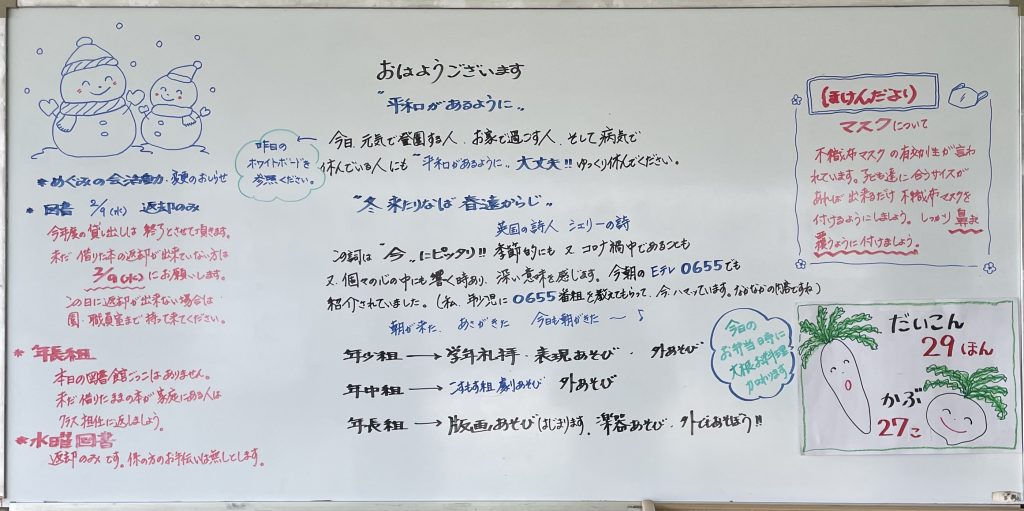 おはようございます
"平和があるように"
今日、元気で登園する人、お家で過ごす人、そして病気で
休んでいる人にも"平和があるように"大丈夫!!ゆっくり休んでください。
昨日の
ホワイトボードを
参照ください。
"冬来たりなば春遠からじ"
英国の詩人 シェリーの詩
この詞は"今"にピッタリ!!季節的にも又コロナ禍中であっても
又、個々の心の中にも響く時あり、深い意味を感じます。今朝のEテレ0655でも
紹介されていました。(私、
に0655番組を教えてもらって、今、ハマっています。なかなかの内容ですね)
朝が来た、あさがきた 今日も朝がきた〜♪
年少組→学年礼拝・表現あそび・外あそび
年中組→
組 劇あそび 外あそび
年長組→版画あそびはじまります、楽器あそび・外でもあそぼう!!
*めぐみの会活動・変更のおしらせ
*図書 2/9(水) 返却のみ
今年度の貸し出しは終了とさせて頂きます。
未だ借りた本の返却が出来ていない方は
2/9(水)にお願いします。
この日に返却が出来ない場合は
園・職員室まで持って来てください。
*年長組
本日の図書館ごっこはありません。
未だ借りたままの本が家庭にある人は
クラス担任に返しましょう。
*水曜図書
返却のみです。係の方のお手伝いは無しとします。
(ほけんだより)
マスクについて
不織布マスクの有効性が言わ
れています。子ども達に合うサイズが
あれば出来るだけ不織布マスクを
付けるようにしましょう。しっかり鼻まで
覆うように付けましょう。
今日の
お弁当時に
大根お料理
加わります
だいこん
29ほん
かぶ
27こ